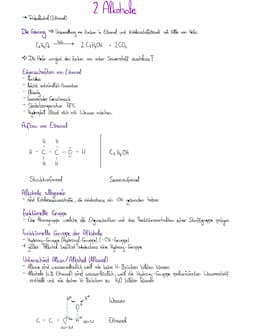 2 Alkohole
→ Trinkalkohol (Ethanol)
Die Gärung → Umwandlung von Zucker in Ethanol und Kohlenstoffdioxid mit Hilfe von Hefe.
C₆H₁₂O₆ → 2 C₂H₅OH + 2CO₂
→ Die Hefe vergärt den Zucker nur unter Sauerstoff
Eigenschaften von Ethanol
- flüssig
- leicht entzündlich
- brennender Geschmack
- Siedetemperatur 78°C
- Hydrophil (lässt sich mit Wasser mischen
Aufbau von Ethanol
H H
H - C - C - O - H
H H
C₂H₅OH
Strukturformel Summenformel
Alkohole allgemein
- sind Kohlenwasserstoffe, die mindestens ein -OH gebunden haben
Funktionelle Gruppe
- Eine Atomgruppe, welche die Eigenschaften und das Reaktionsverhalten einer Stoffgruppe prägen
Funktionelle Gruppe der Alkohole
- Hydroxy-Gruppe (Hydroxyl-Gruppe) (-OH-Gruppe)
→ jeder Alkohol besitzt mindestens eine Hydroxy-Gruppe
Unterschied Alkan/Alkohol (Ethanol)
- Alkane sind wasserunlöslich, weil sie keine H-Brücken bilden können
- Alkohole (z.B. Ethanol) sind wasserlöslich, weil die Hydroxy-Gruppe polarisierten Wasserstoff enthält und wie daher H-Brücken zu H₂O bilden können
Wasser
C - C - O Ethanol